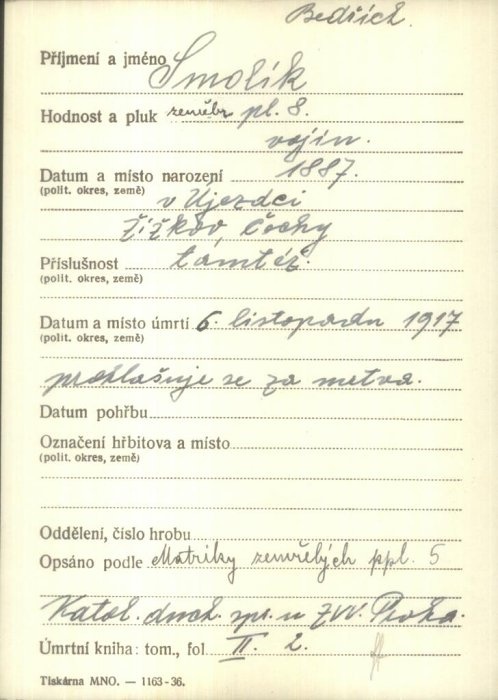 Bedřich.
Příjmení a jméno Smolík
Hodnost a pluk zeměbr pl. 8.
vojín.
Datum a místo narození 1887.
(polit. okres, země) v Újezdci
Žižkov Čechy
Příslušnost tamtéž.
(polit. okres, země)
Datum a místo úmrtí 6. listopadu 1917
(polit. okres, země)
prohlašuje se za mrtva.
Datum pohřbu
Označení hřbitova a místo
(polit. okres, země)
Oddělení, číslo hrobu
Opsáno podle Matriky zemřelých ppl. 5
Katol. duch. spr. u ZVV. Praha.
Úmrtní kniha: tom., fol II. 2.
Tiskárna MNO. — 1163-36.